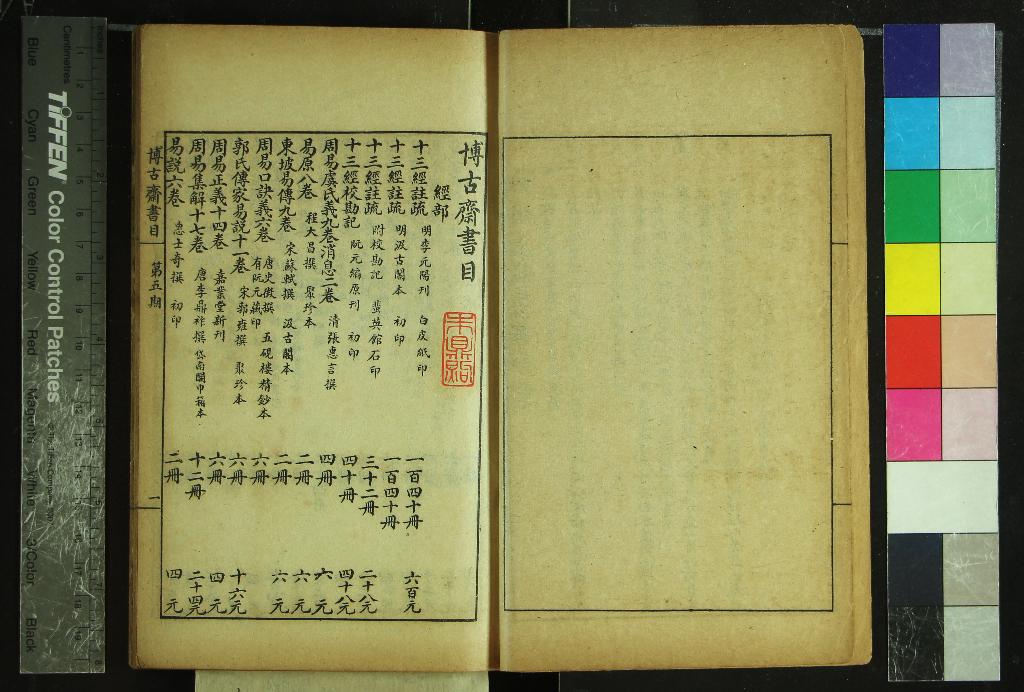 博古齋書目
經部
十三經註疏 明李元陽刊 白皮紙印 一百四十冊 六百元
十三經註疏 明汲古閣本 初印 一百四十冊
十三經註疏 附校勘記 蜚英館石印 三十二冊 二十八元
十三經校勘記 阮元編原刊 初印 四十冊 四十八元
周易虞氏義九卷消息二卷 清張惠言撰 四冊 六元
易原八卷 程大昌撰 聚珍本 二冊 六元
東坡易傳九卷 宋蘇軾撰 汲古閣本 二冊 六元
周易口訣義六卷 唐史徵撰 五硯樓精鈔本 有阮元藏印 六冊
郭氏傳家易說十一卷 宋郭雍撰 聚珍本 六冊 十六元
周易正義十四卷 嘉業堂新刊 六冊 四元
周易集解十七卷 唐李鼎祚撰 巾箱本 十二冊 二十四元
易說六卷 惠士奇撰 初印 二冊 四元
博古齋書目 第五期 一
TIFFEN Color Control Patches
Centimetres
Inches
Blue
Cyan
Green
Yellow
Red
Magenta
White
3/Color
Black